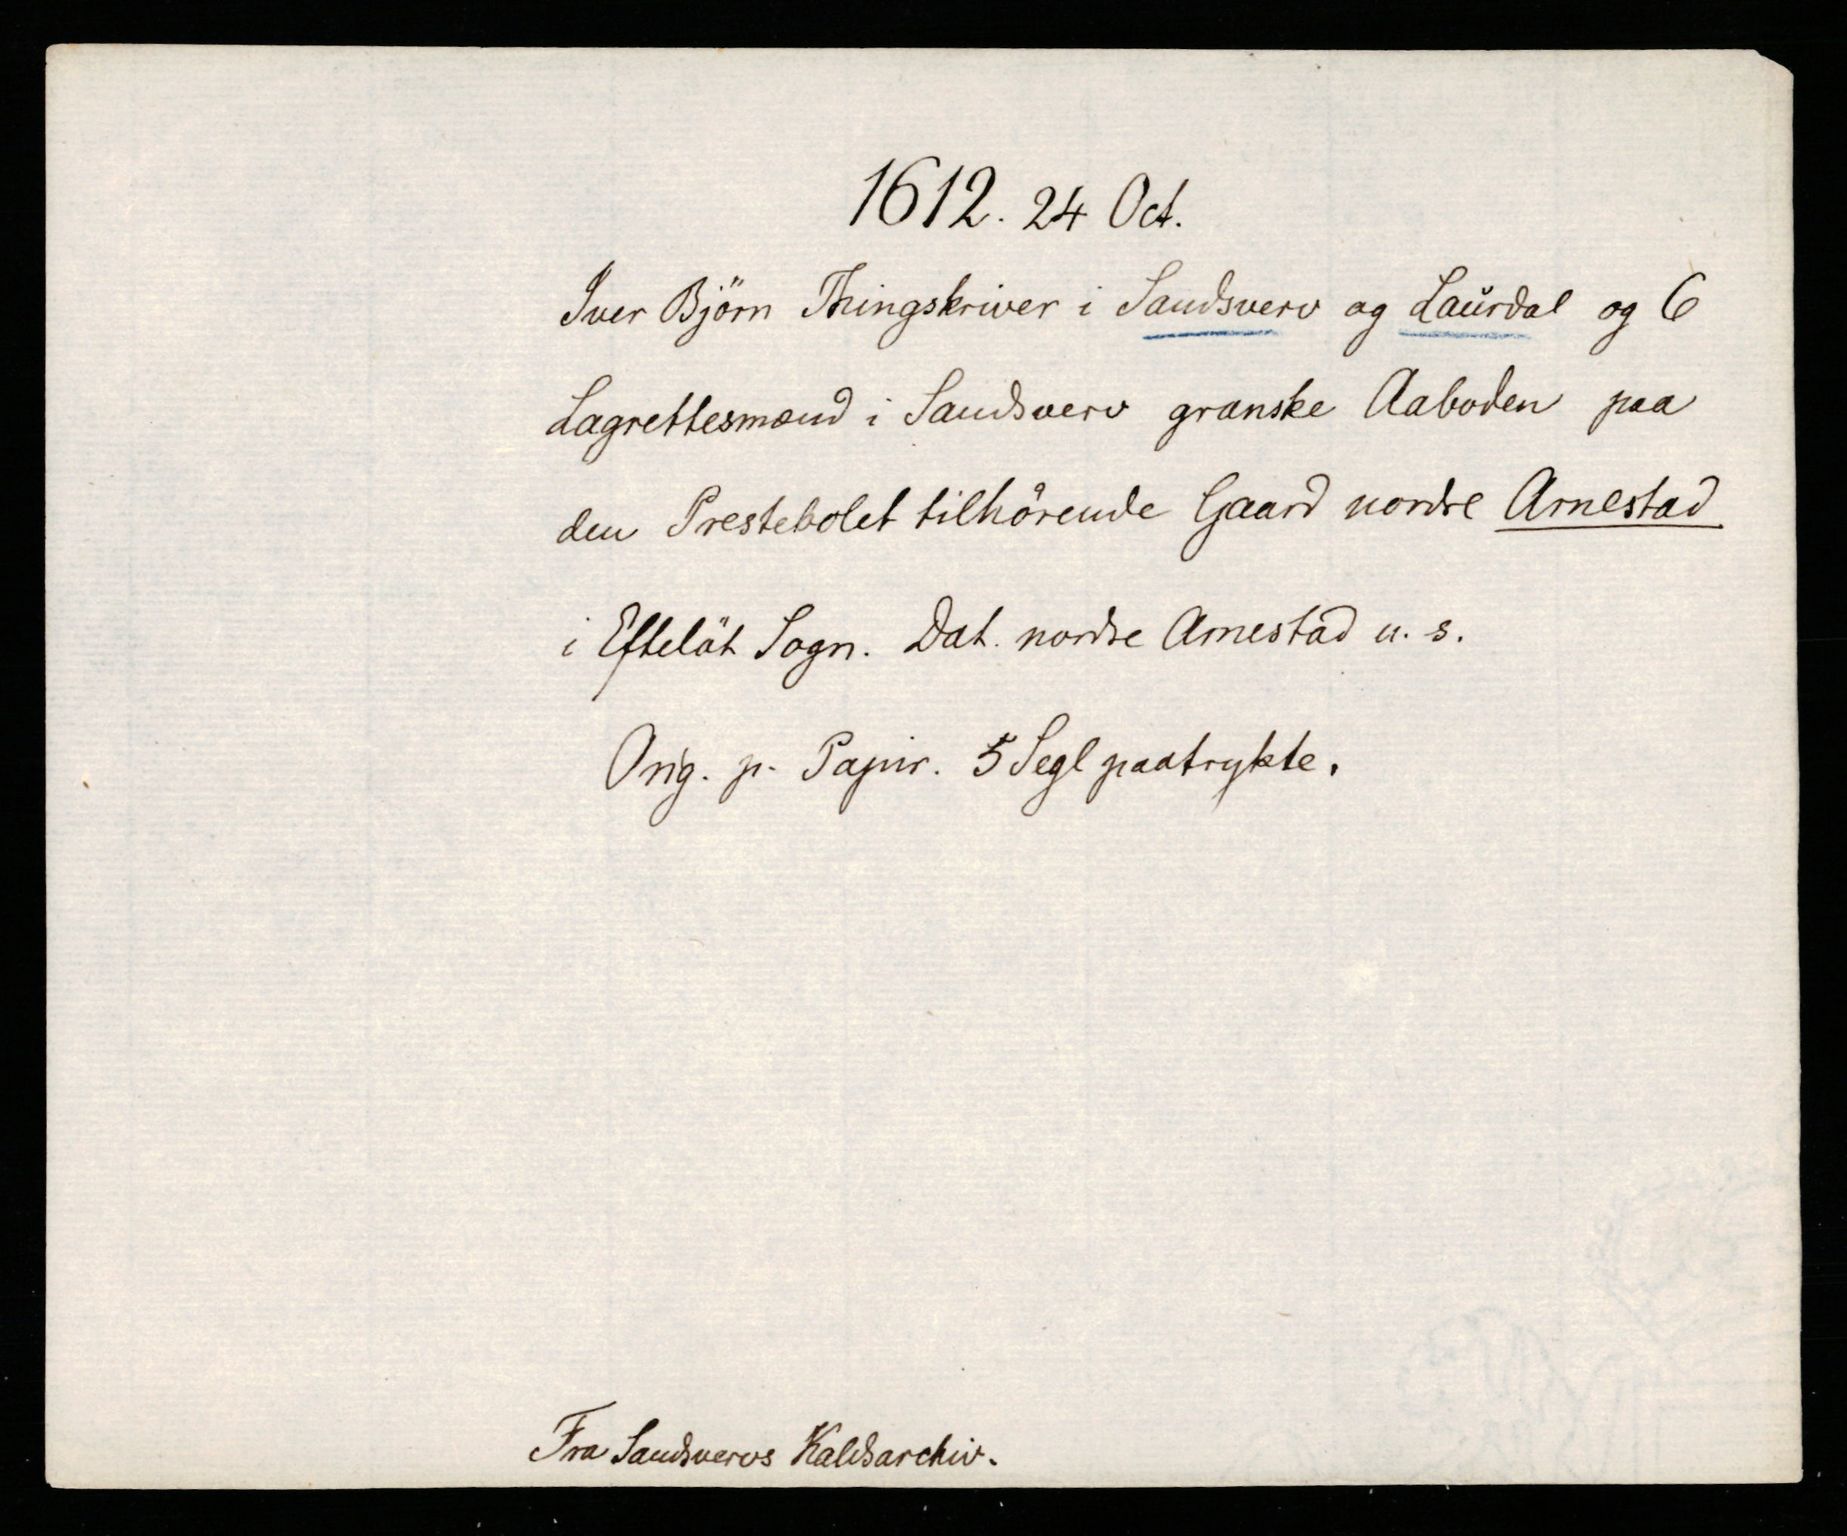 1612. 24 Oct.
Iver Björn Thingskriver i Sandsverv og Laurdal og 6
Lagrettesmænd i Sandsverv granske Aaboden paa
den Prestebolet tilhörende Gaard nordre Arnestad
i Efteløt Sogn. Dat. nordre Arnestad u. s.
Orig. p. Papir. 5 Segl paatrykte.
Fra Sandsvervs Kaldsarchiv.